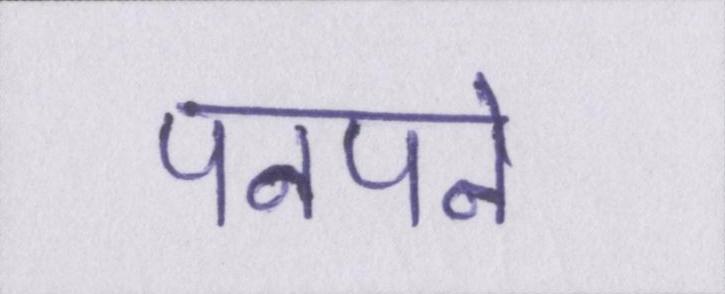 पनपने